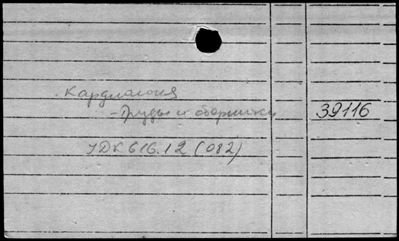 Кардиология
- Труды и сборники 39116
УДК 616.12 (082)